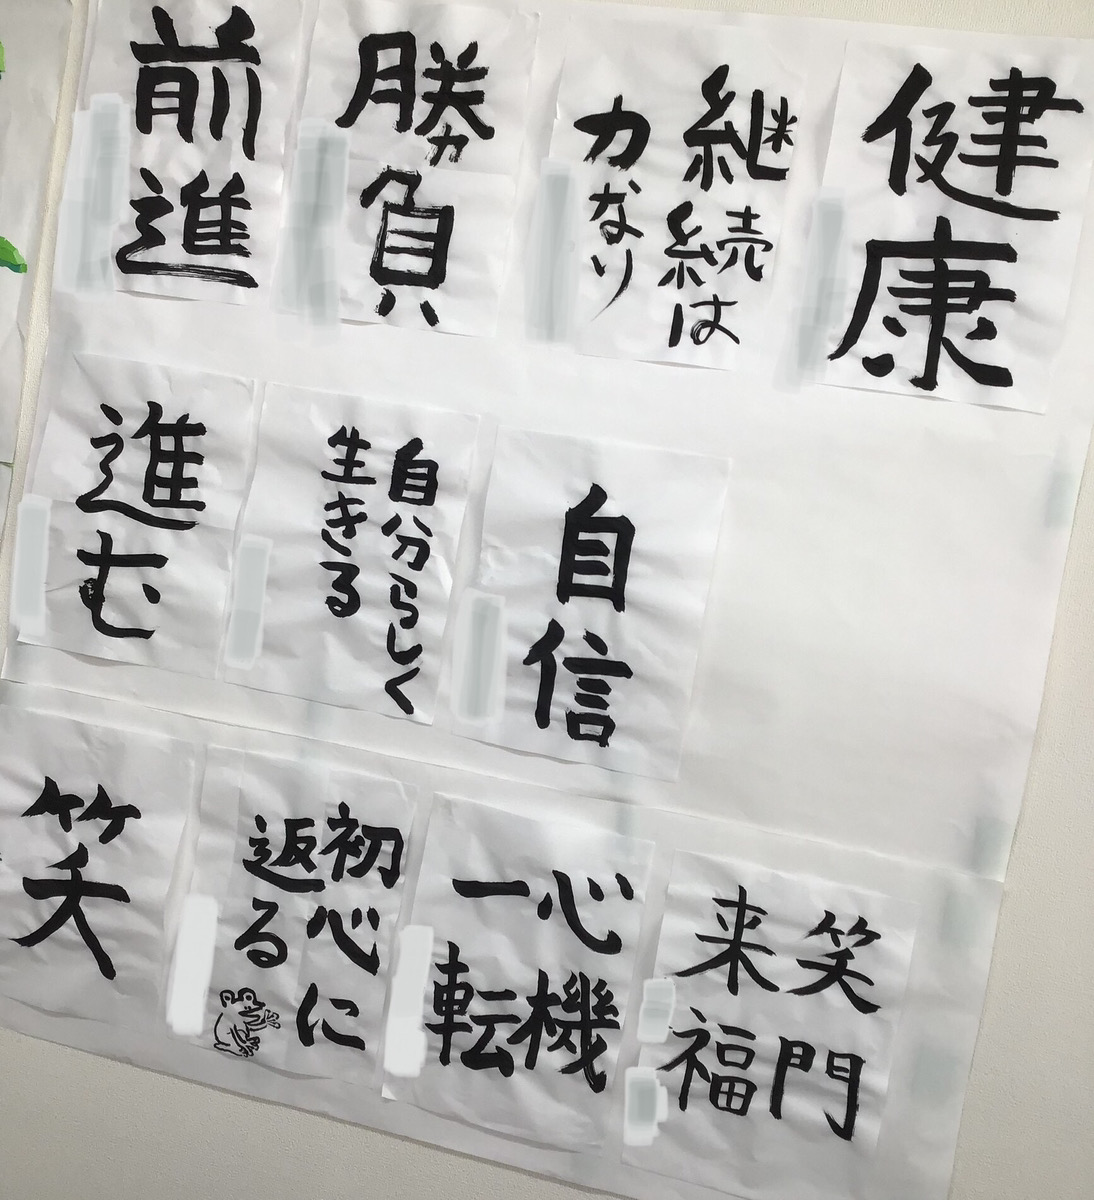 健康
継続は
力なり
勝負
前進
自信
自分らしく
生きる
進む
笑門
来福
心機
一転
初心に
返る
笑